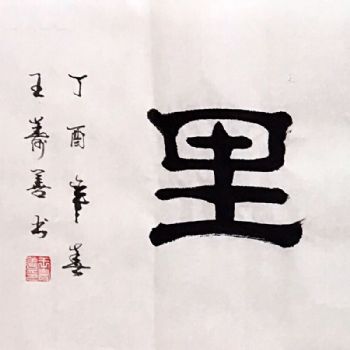 里
丁酉年春
王寿善书